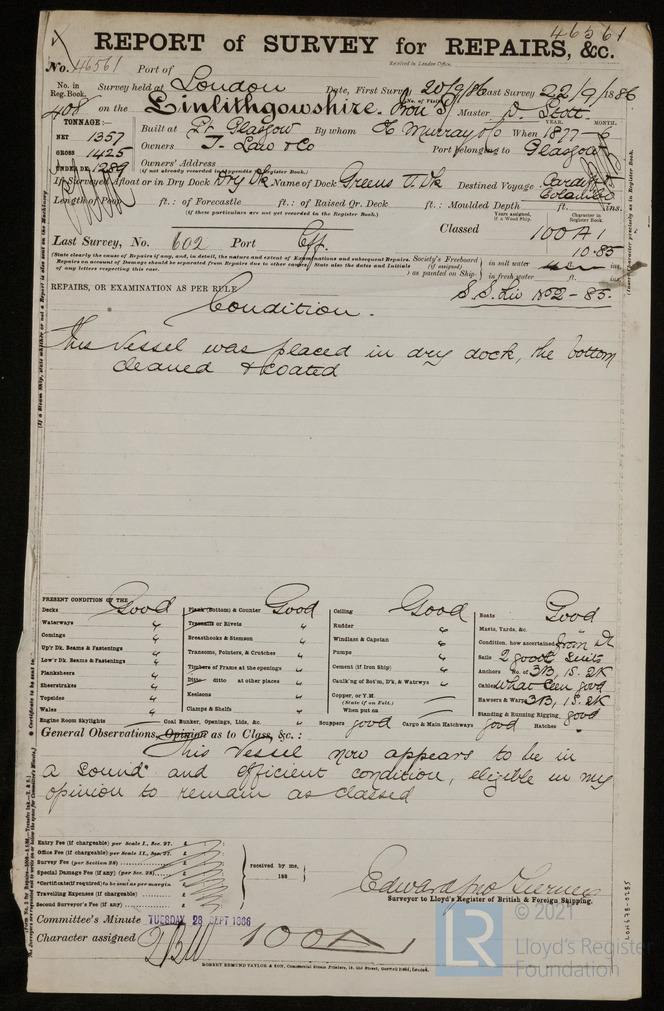 46561
REPORT of SURVEY for REPAIRS, &c.
Received in London Office.
No. 46561 Port of
No. in Reg. Book. Survey held at London Date, First Survey 20/9/86 Last Survey 22/9/1886
408 on the Linlithgowshire. Master D. Stott.
TONNAGE:— YEAR. MONTH.
NET 1357 Built at Pt. Glasgow By whom When 1877–6
GROSS 1425 Owners T. Law & Co Port belonging to Glasgow
UNDER DK. 1289 Owners' Address
(if not already recorded in Appendix to Register Book.)
If Surveyed Afloat or in Dry Dock Dry Dk Name of Dock Greens Destined Voyage Cardiff
Length of Poop ft.: of Forecastle ft.: of Raised Qr. Deck ft.: Moulded Depth ft. ins.
(If these particulars are not yet recorded in the Register Book.) Years assigned, if a Wood Ship. Character in Register Book.
Classed 100 A 1
10.85
Last Survey, No. 602 Port
(State clearly the cause of Repairs if any, and, in detail, the nature and extent of Examinations and subsequent Repairs.
Repairs on account of Damage should be separated from Repairs due to other causes; State also the dates and Initials
of any letters respecting this case.
Society's Freeboard (if assigned) as painted on Ship. in salt water ins.
in fresh water ft. ins.
REPAIRS, OR EXAMINATION AS PER RULE S. S. Liv No 2 – 85.
Condition.
This Vessel was placed in dry dock, the bottom
cleaned & coated
PRESENT CONDITION OF THE
Decks Good
Waterways "
Comings "
Up'r Dk. Beams & Fastenings "
Low'r Dk. Beams & Fastenings "
Planksheers "
Sheerstrakes "
Topsides "
Wales "
Engine Room Skylights
Plank (Bottom) & Counter Good
Treenails or Rivets "
Breasthooks & Stemson "
Transoms, Pointers, & Crutches "
Timbers of Frame at the openings "
Ditto ditto at other places "
Keelsons "
Clamps & Shelfs "
Coal Bunker, Openings, Lids, &c. "
Ceiling Good
Rudder "
Windlass & Capstan "
Pumps "
Cement (if Iron Ship) "
Caulk'ng of Bot'm, D'k, & Watrwys "
Copper, or Y.M.
(State if on Felt.)
When put on
Scuppers good Cargo & Main Hatchways good Hatches
Boats Good
Masts, Yards, &c. "
Condition, how ascertained from Dk
Sails 2 good Suits
Anchors No. of 3B, 1S. 2K
Cables What seen good
Hawsers & Warps 3B, 1S. 2K
Standing & Running Rigging good
General Observations, Opinion as to Class, &c. :
This Vessel now appears to be in
a sound and efficient condition, eligible in my
opinion to remain as classed
Entry Fee (if chargeable) per Scale I., Sec. 27. £
Office Fee (if chargeable) per Scale II., Sec. 27. £
Survey Fee (per Section 28) £
Special Damage Fee (if any) (per Sec. 28) £
Certificate (if required) to be sent as per margin
Travelling Expenses (if chargeable) £
Second Surveyor's Fee (if any) £
received by me,
188
Edward Jno Tierney
Surveyor to Lloyd's Register of British & Foreign Shipping.
Committee's Minute TUESDAY 28 SEPT 1886
Character assigned 100A
ROBERT EDMUND TAYLOR & SON, Commercial Steam Printers, 19, Old Street, Goswell Road, London.
LON678-0285
LR
© 2021
Lloyd's Register
Foundation